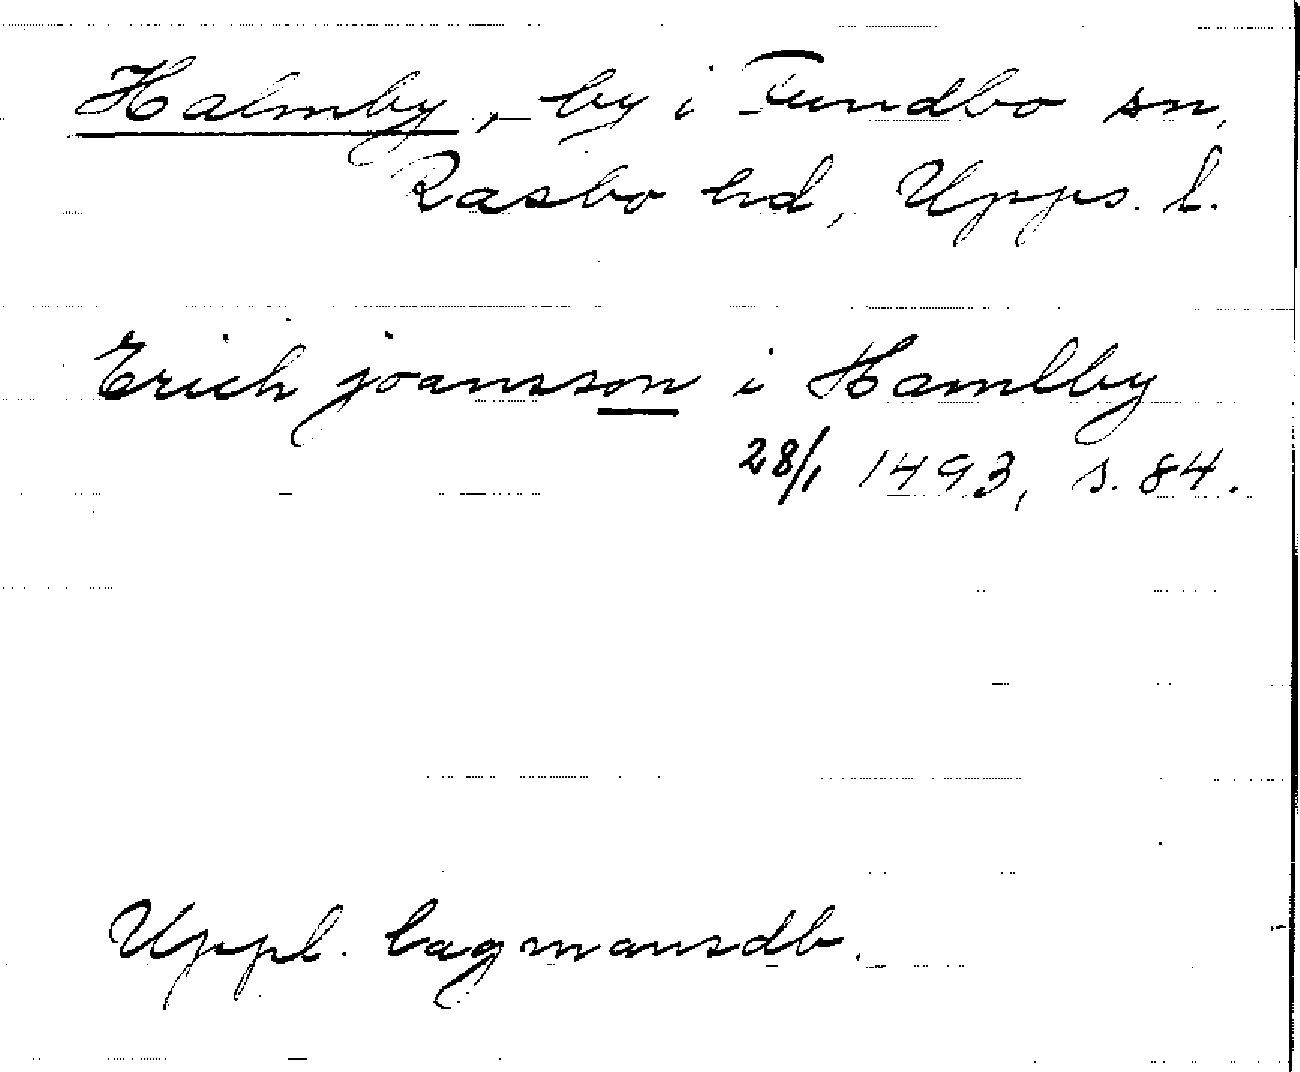 Halmby, by i Fundbo sn,
Rasbo hd, Upps. l.
Erich joansson i Hamlby
28/1 1493, s. 84.
Uppl. lagmansdb.